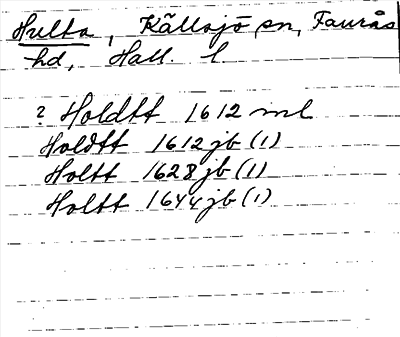 Hulta, Källsjö sn, Faurås
hd, Hall. l
? Holdtt 1612 ml
Holdtt 1612 jb (1)
Holtt 1628 jb (1)
Holtt 1644 jb (1)